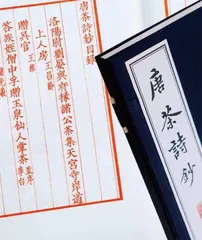 唐茶詩鈔目錄
洛陽尉劉晏與府掾諸公茶集天宮寺岸道
上人房 王昌齡
贈吳官 王維
答族姪僧中孚贈玉泉仙人掌茶 李白 並序
唐茶詩鈔